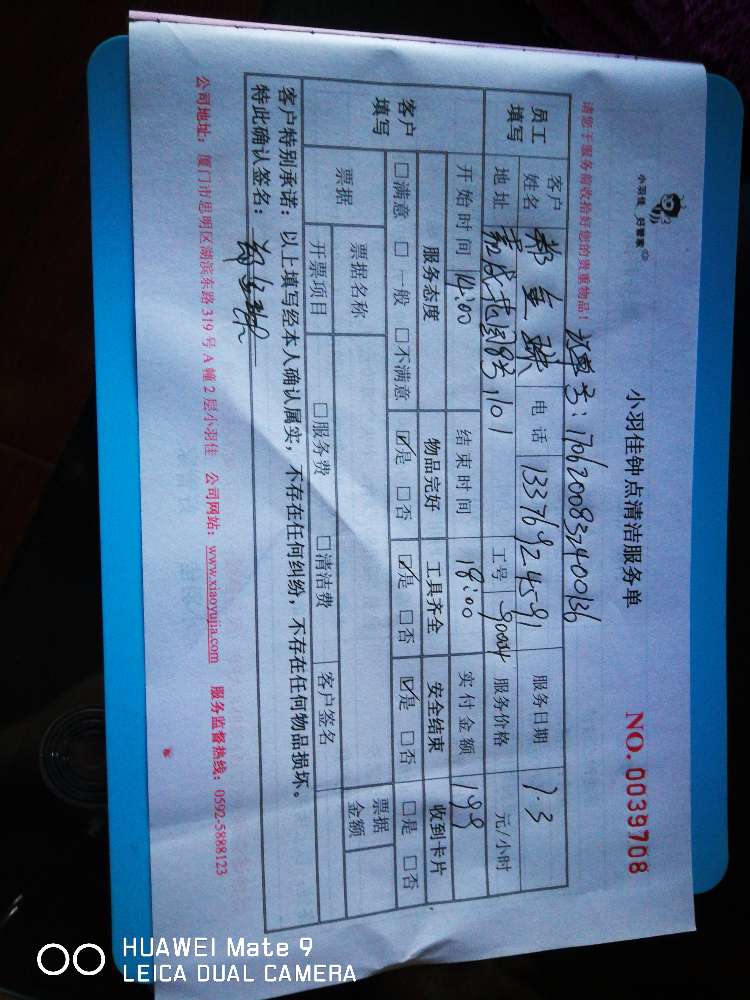 小羽佳 好管家
小羽佳钟点清洁服务单
NO. 0039708
请您于服务前收拾好您的贵重物品!
订单号:170620083240036
员工填写
客户姓名 郑 电话 13376924591 服务日期 7.3
地址 嘉成花园83,101 工号 90004 服务价格 元/小时
开始时间 14:00 结束时间 18:00 实付金额 199
客户填写
服务态度 物品完好 工具齐全 安全结束 收到卡片
□满意 □一般 □不满意 ☑是 □否 ☑是 □否 ☑是 □否 □是 □否
票据 票据名称 票据金额
开票项目 □服务费 □清洁费 客户签名
客户特别承诺:以上填写经本人确认属实,不存在任何纠纷,不存在任何物品损坏。
特此确认签名:郑
公司地址:厦门市思明区湖滨东路319号A幢2层小羽佳 公司网站:www.xiaoyujia.com 服务监督热线:0592-5888123
HUAWEI Mate 9
LEICA DUAL CAMERA